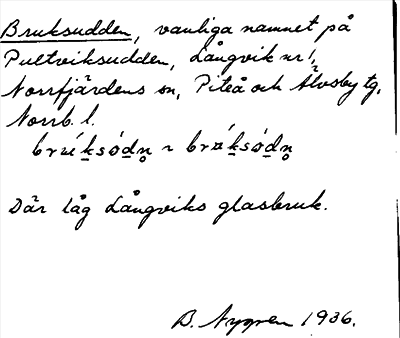 Bruksudden, vanliga namnet på
Pultviksudden, Långvik nr 1,
Norrfjärdens sn, Piteå och Älvsby tg,
Norrb. l.
Där låg Långviks glasbruk.
B. Nygren 1936.